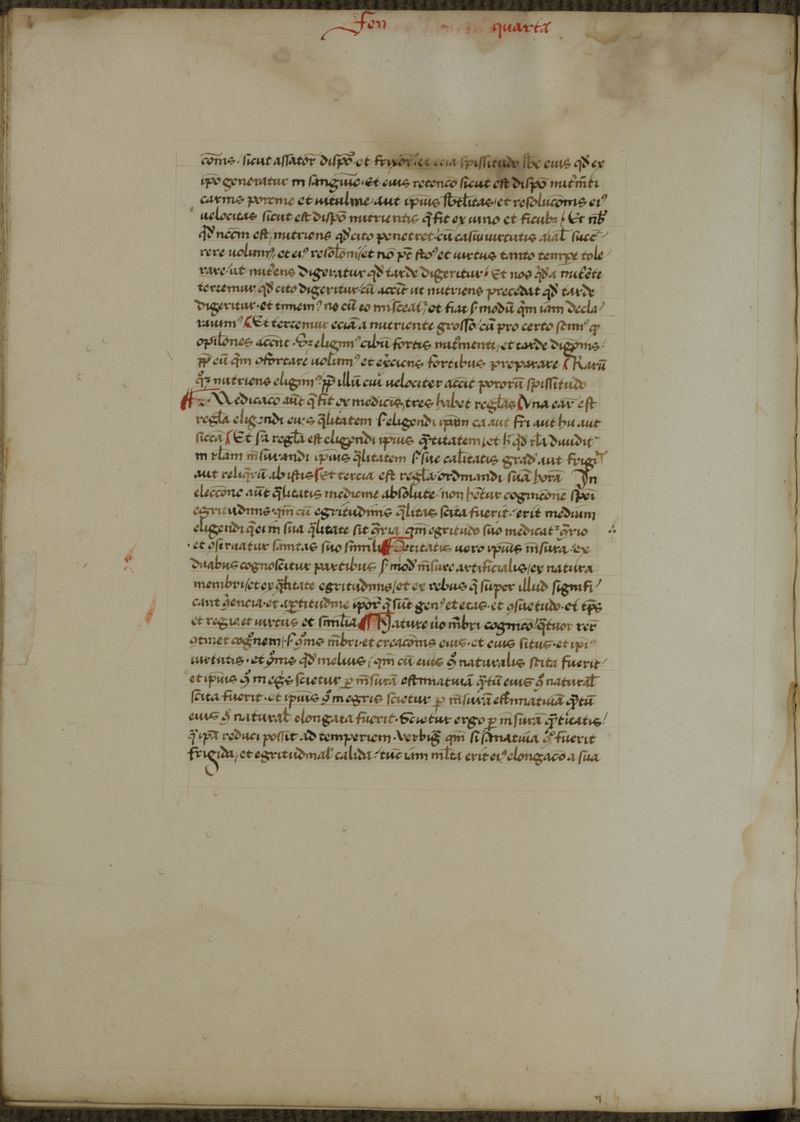 Fen quarta
com̄s. sicut assator̄ dispō. et frixor̄. et ecia spissitudo sbe eius qd̄ ex
ip̄o generatur in sanguine. Et eius retencō sicut est dispō nut̄mti
carnis porcine et vituline. aut ip̄ius sbtilitas et resolucōnis eiꝰ
uelocitas sicut est dispō nutrientis q̄ fit ex uino et ficubꝫ. Et nb̄
qd̄ necm̄ est, nutriens qd̄ cito penetret. cū casui uirtutis aīal succ̄
rere uolumꝰ, et eiꝰ et nō pt̄ et uirtus tanto tempe tole
rare ut nut̄ens digeratur qd̄ tarde digeritur. Et nos qd̄a nut̄ete
terremur qd̄ cito digeritur. cū accit ut nutriens precedat qd̄ tarde
digeritur. et timemꝰ ne cū eo misceatꝰ, et fiat s̄ modū qm̄ iam decla
rauimꝰ. Et terremur eciā a nutriente grosso. cū pro certo scimꝰ qꝫ
opilōnes accnt. eligimꝰ cibū fortis nut̄menti, et tarde digōnis.
ꝓp̄ cū qm̄ ꝯfortare uolumꝰ et exciens fortibus preparare. Rarū
nutriens eligimꝰ ꝓp̄ illū cui uelociter accit pororū spissitudo
Medicacō aūt q̄ fit ex medicis, tres habet reglas. Una ear̄ est
regla eligendi eius q̄litatem s̄ eligendi ip̄am ca aut fri aut hu aut
sicca. Et sā regla est eligendi ip̄ius q̄titatem, et h̄ qd̄ rla diuidit
in rlam m̄surandi ip̄ius q̄litatem s̄ sue calitatis gradꝰ aut frigi
aut reliq̄rū ab istis. Et tercia est regla ordinandi suā horā. In
eleccōne aūt q̄litatis medicine absolute. non hētur cognicōne spēi
egritudinis. qm̄ cū egritudinis q̄litas scita fuerit. erit medium
eligendi q̄ ei in sua q̄litate sit ꝯria. qm̄ egritudo suo medicatꝰ ꝯrio
et ꝯseruatur sanitas suo simili. Q̄titatis uero ip̄ius m̄sura. ex
duabus cognoscitur partibus s̄ modꝰ m̄sure artificialis, ex natura
membri, et ex q̄titate egritudinis, et ex rebus q̄ super illud signifi
cant ꝯuencia. et aptitudine ipor̄ q̄ sūt genꝰ et etas. et ꝯsuetudo. et tp̄s
et regio, et uirtus et similia. Nature uō mbri cognicō. q̄tuor rer̄
ꝯtinet cognem, s̄ ꝯmꝰ mbri. et creacōnis eius. et eius situs. et ipiꝰ
uirtutis. et ꝯms qd̄ melius, qm̄ cū eius ꝯ naturalis scita fuerit
et ipius ꝯ m egs scietur p m̄surā estimatuā q̄tū eius ꝯ natural
scita fuerit. et ipius ꝯ m egris scietur p m̄surā estimatiuā q̄tū
eius ꝯ natural elongata fuerit. Scietur ergo p m̄surā q̄titatis,
q̄ ipā reduci possit ad temperiem. Verbigͣ qm̄ si sanatiua ꝯ fuerit
frigida, et egritudinal calida. tuc iam mlta erit eiꝰ elongacō a sua